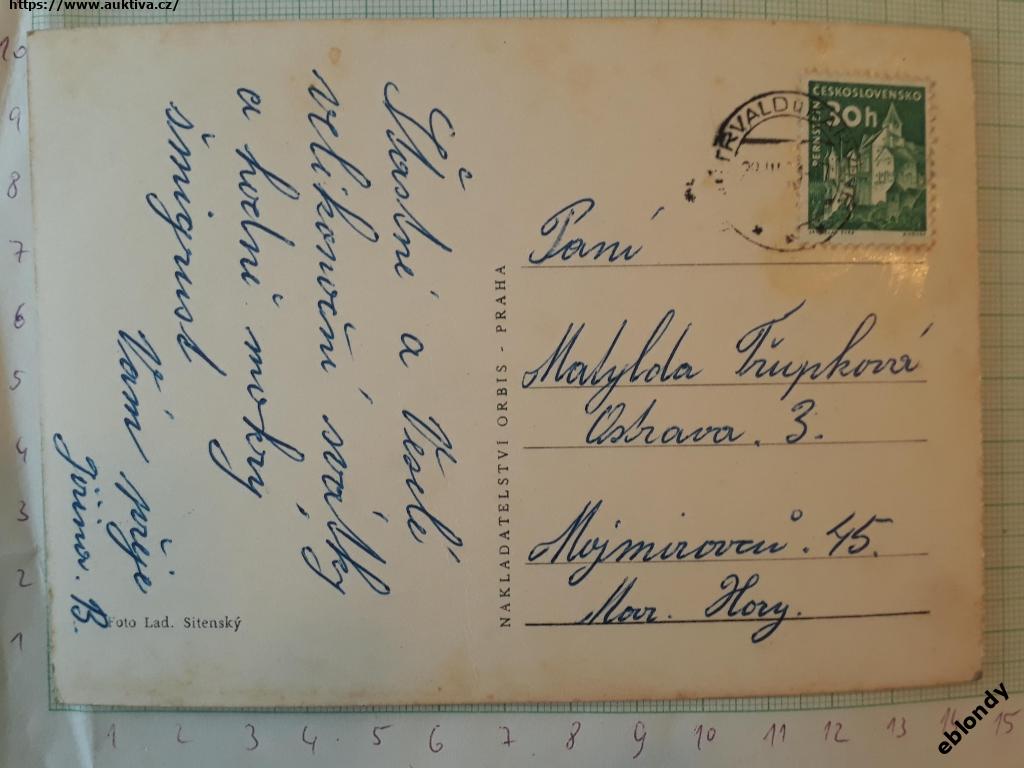 https://www.auktiva.cz/
Šťastné a Veselé
velikonoční svátky
a hodně mokrý
šmigrust
Vám přeje
Jiřina. B.
Foto Lad. Sitenský
NAKLADATELSTVÍ ORBIS - PRAHA
ČESKOSLOVENSKO
30h
PERNŠTEJN
Paní
Matylda Třupková
Ostrava. 3.
Mojmírovců. 45.
Mar. Hory.
10
9
8
7
6
5
4
3
2
1
1 2 3 4 5 6 7 8 9 10 11 12 13 14 15
eblondy